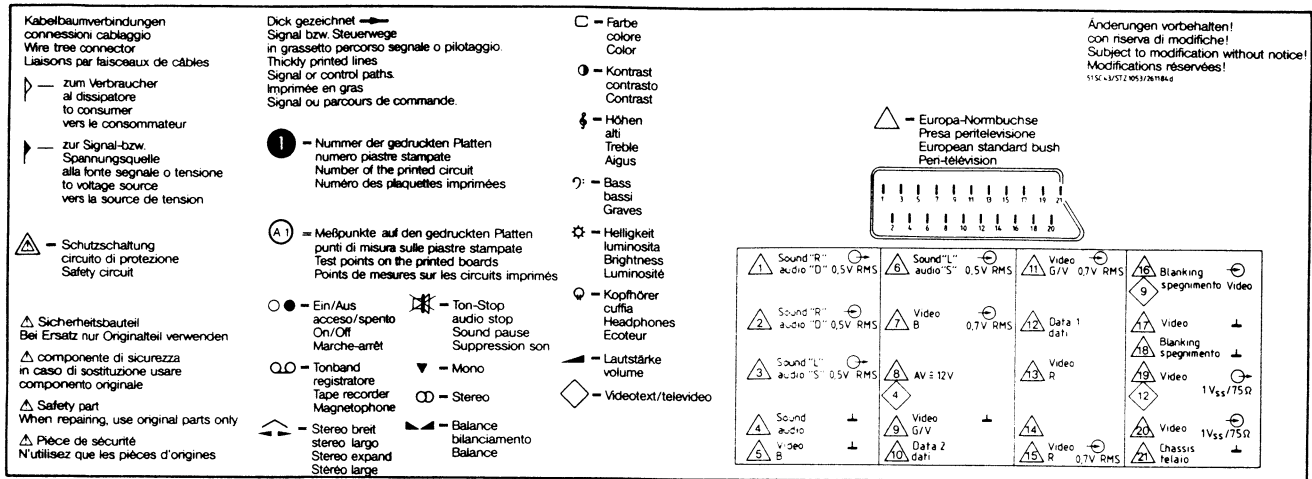 Kabelbaumverbindungen
connessioni cablaggio
Wire tree connector
Liaisons par faisceaux de câbles
zum Verbraucher
al dissipatore
to consumer
vers le consommateur
zur Signal-bzw.
Spannungsquelle
alla fonte segnale o tensione
to voltage source
vers la source de tension
– Schutzschaltung
circuito di protezione
Safety circuit
Sicherheitsbauteil
Bei Ersatz nur Originalteil verwenden
componente di sicurezza
in caso di sostituzione usare
componento originale
Safety part
When repairing, use original parts only
Pièce de sécurité
N'utilisez que les pièces d'origines
Dick gezeichnet
Signal bzw. Steuerwege
in grassetto percorso segnale o pilotaggio.
Thickly printed lines
Signal or control paths.
Imprimée en gras
Signal ou parcours de commande.
1 – Nummer der gedruckten Platten
numero piastre stampate
Number of the printed circuit
Numéro des plaquettes imprimées
A 1 = Meßpunkte auf den gedruckten Platten
punti di misura sulle piastre stampate
Test points on the printed boards
Points de mesures sur les circuits imprimés
– Ein/Aus
acceso/spento
On/Off
Marche-arrêt
– Tonband
registratore
Tape recorder
Magnetophone
– Stereo breit
stereo largo
Stereo expand
Stéréo large
– Ton-Stop
audio stop
Sound pause
Suppression son
– Mono
– Stereo
– Balance
bilanciamento
Balance
– Farbe
colore
Color
– Kontrast
contrasto
Contrast
– Höhen
alti
Treble
Aigus
– Bass
bassi
Graves
– Helligkeit
luminosita
Brightness
Luminosité
– Kopfhörer
cuffia
Headphones
Ecoteur
– Lautstärke
volume
– Videotext/televideo
Änderungen vorbehalten!
con riserva di modifiche!
Subject to modification without notice!
Modifications réservées!
– Europa-Normbuchse
Presa peritelevisione
European standard bush
Peri-télévision
1 3 5 7 9 11 13 15 17 19 21
2 4 6 8 10 12 14 16 18 20
1 Sound "R"
audio "D" 0,5V RMS
2 Sound "R"
audio "D" 0,5V RMS
3 Sound "L"
audio "S" 0,5V RMS
4 Sound
audio
5 Video
B
6 Sound "L"
audio "S" 0,5V RMS
7 Video
B 0,7V RMS
8 AV ≙ 12V
4
9 Video
G/V
10 Data 2
dati
11 Video
G/V 0,7V RMS
12 Data 1
dati
13 Video
R
14
15 Video
R 0,7V RMS
16 Blanking
spegnimento Video
9
17 Video
18 Blanking
spegnimento
19 Video
12 1Vss/75Ω
20 Video
1Vss/75Ω
21 Chassis
telaio